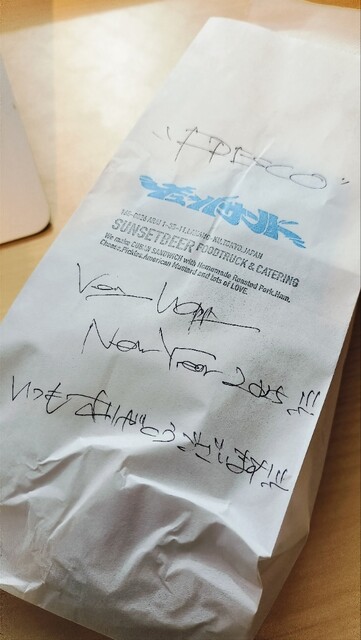 "FRESCO"
SUNSETBEER FOODTRUCK & CATERING
We make CUBAN SANDWICH with Homemade Roasted Pork, Ham,
Cheese, Pickles, American Mustard and lots of LOVE.
Very Happy
New Year 2025 !!!
いつもありがとうございます!!!